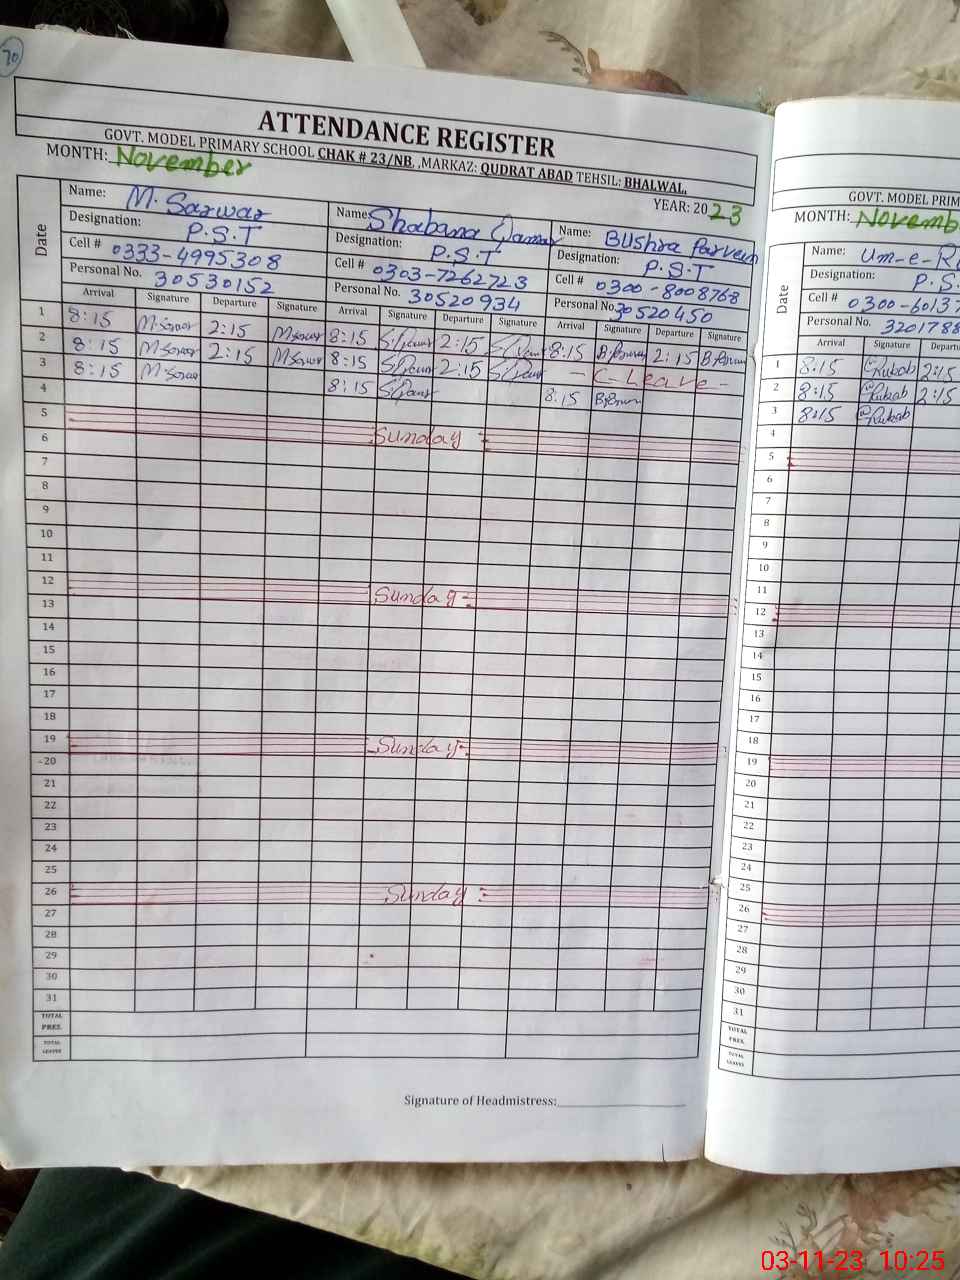 70
ATTENDANCE REGISTER
GOVT. MODEL PRIMARY SCHOOL CHAK # 23/NB. ,MARKAZ: QUDRAT ABAD TEHSIL: BHALWAL.
MONTH: November
YEAR: 2023
Date
Name: M. Sarwar
Designation: P.S.T
Cell # 0333-4995308
Personal No. 30530152
Name: Shabana Qamar
Designation: P.S.T
Cell # 0303-7262723
Personal No. 30520934
Name: Bushra Parveen
Designation: P.S.T
Cell # 0300-8008768
Personal No. 30520450
Arrival Signature Departure Signature Arrival Signature Departure Signature Arrival Signature Departure Signature
1 8:15 M.Sarwar 2:15 M.Sarwar 8:15 2:15 8:15 2:15
2 8:15 M.Sarwar 2:15 M.Sarwar 8:15 2:15 - C-Leave -
3 8:15 M.Sarwar 8:15 8:15
4
5 Sunday
6
7
8
9
10
11
12 Sunday
13
14
15
16
17
18
19 Sunday
20
21
22
23
24
25
26 Sunday
27
28
29
30
31
TOTAL PRES.
TOTAL LEAVES
Signature of Headmistress:
GOVT. MODEL PRIM
MONTH: Novemb
Date
Name: Um-e-R
Designation: P.S.
Cell # 0300-6013
Personal No. 320178
Arrival Signature Departure
1 8:15 Rubab 2:15
2 8:15 Rubab 2:15
3 8:15 Rubab
4
5
6
7
8
9
10
11
12
13
14
15
16
17
18
19
20
21
22
23
24
25
26
27
28
29
30
31
TOTAL PRES.
TOTAL LEAVES
03-11-23 10:25